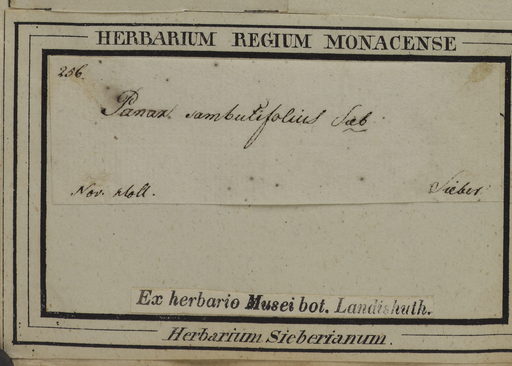 HERBARIUM REGIUM MONACENSE
256.
Panax sambucifolius Sieb
Nov. Holl.
Sieber
Ex herbario Musei bot. Landishuth.
Herbarium Sieberianum.